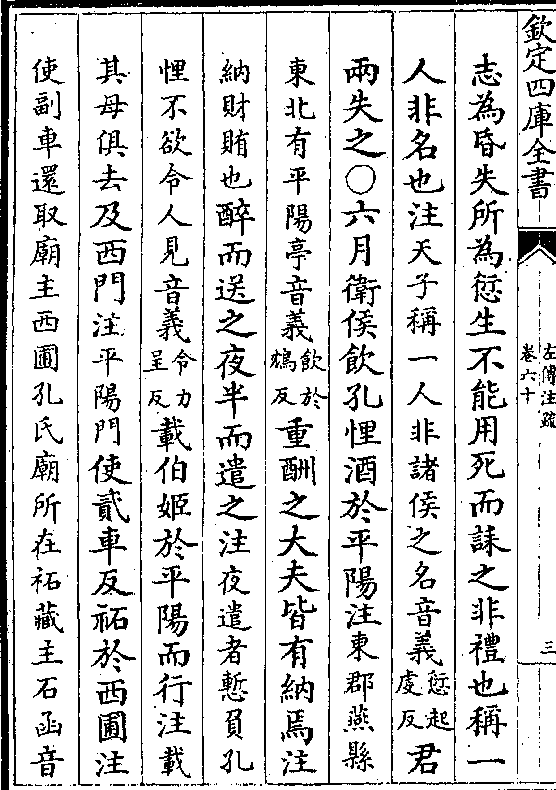 欽定四庫全書
左傳注疏
卷六十
三
志為昏失所為愆生不能用死而誄之非禮也稱一
人非名也注天子稱一人非諸侯之名音義愆起虔反君
兩失之〇六月衛侯飲孔悝酒於平陽注東郡燕縣
東北有平陽亭音義飲於鴆反重酬之大夫皆有納焉注
納財賄也醉而送之夜半而遣之注夜遣者慙負孔
悝不欲令人見音義令力呈反載伯姬於平陽而行注載
其母俱去及西門注平陽門使貳車反祏於西圃注
使副車還取廟主西圃孔氏廟所在祏藏主石函音